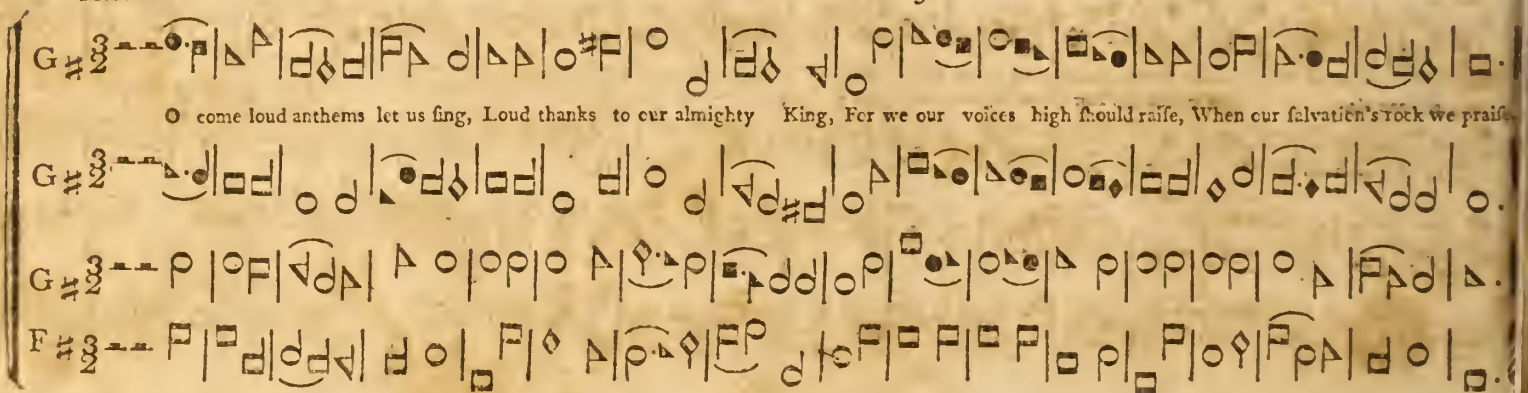 G # 3 2
O come loud anthems let us ſing, Loud thanks to our almighty King, For we our voices high ſhould raiſe, When our ſalvation's rock we praiſe
G # 3 2
G # 3 2
F # 3 2